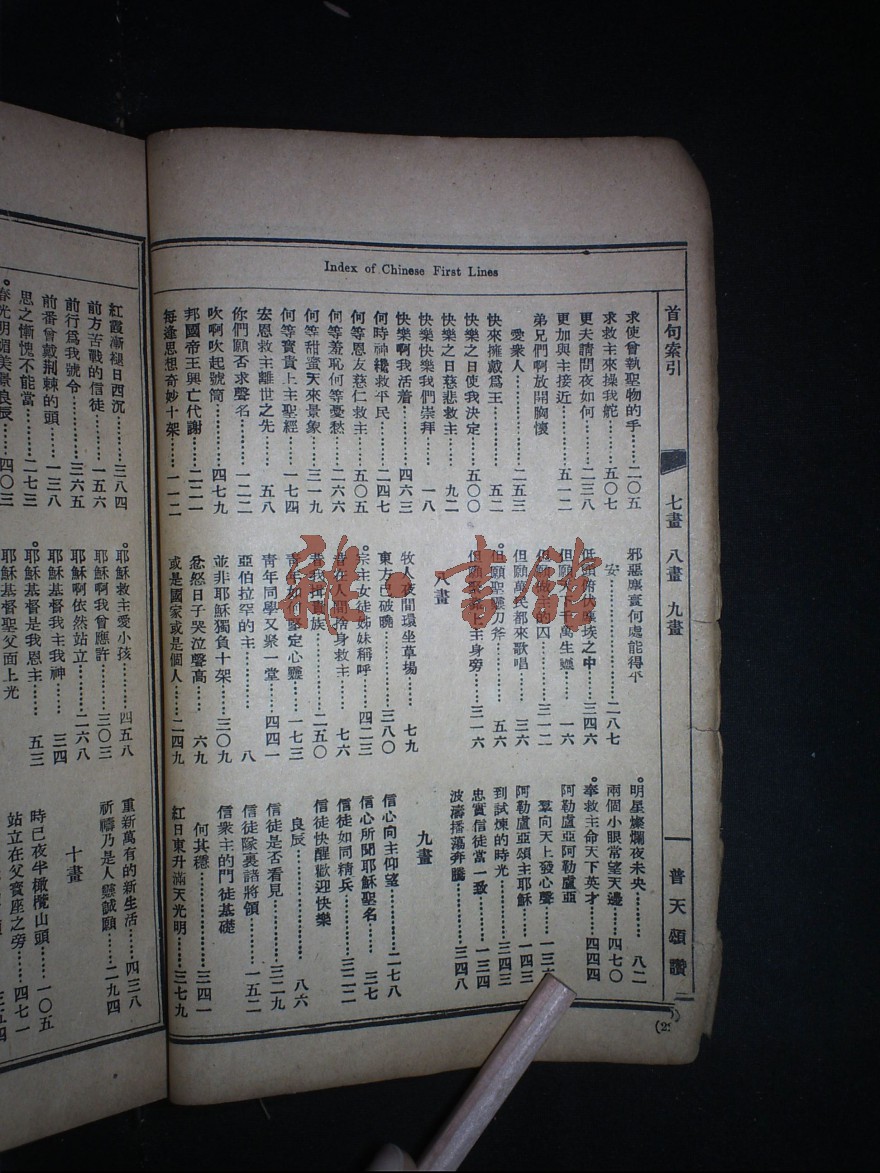 Index of Chinese First Lines
首句索引
七畫 八畫 九畫
普天頌讚
求使曾執聖物的手………二〇五
求救主來操我舵………五〇七
更夫請問夜如何………二三八
更加與主接近………五一二
弟兄們啊放開胸懷
愛衆人………二五三
快來擁戴爲王………五二
快樂之日使我決定………五〇〇
快樂之日慈悲救主………九二
快樂快樂我們崇拜………一八
快樂啊我活着………四六三
何時神纔救平民………二四七
何等恩友慈仁救主………五〇五
何等羞恥何等憂愁………二六六
何等甜蜜天來景象………三一九
何等寶貴上主聖經………一七四
宏恩救主離世之先………五八
你們願否求聲名………一一一
吹啊吹起號筒………四七九
邦國帝王興亡代謝………二二一
每逢思想奇妙十架………一一二
邪惡塵寰何處能得平
安………二八七
低頭俯伏塵埃之中………三四六
但願天下千萬生靈………一六
但願做您的囚………三一二
但願萬民都來歌唱………六
。但願聖靈刀斧………五六
但願緊靠主身旁………三一六
八畫
牧人夜間環坐草場………七九
東方已破曉………三八〇
。宗主女徒姊妹稱呼………四二三
昔在人間捨身救主………七六
昔我揖貴族………二五〇
青年如何堅定心靈………一七三
青年同學又聚一堂………四四一
亞伯拉罕的主………八
並非耶穌獨負十架………三〇九
忿怒日子哭泣聲高………六九
或是國家或是個人………二四九
。明星燦爛夜未央………八二
兩個小眼常望天邊………四七〇
。奉救主命天下英才………四四四
阿勒盧亞阿勒盧亞
羣向天上發心聲………一三
阿勒盧亞頌主耶穌………一四三
到試煉的時光………三四三
忠實信徒當一致………一三四
波濤播蕩奔騰………三四八
九畫
信心向主仰望………二七八
信心所聞耶穌聖名………三七
信徒如同精兵………三二二
信徒快醒歡迎快樂
良辰………八六
信徒是否看見………三二九
信徒隊裏諸將領………一五二
信衆主的門徒基礎
何其穩………三四一
紅日東升滿天光明………三七九
紅霞漸褪日西沉………三八四
前方苦戰的信徒………一五六
前行爲我號令………三六五
前番曾戴荆棘的頭………一三八
思之慚愧不能當………二七三
。春光明媚美景良辰………四〇三
。耶穌救主愛小孩………四五八
耶穌啊我曾應許………三〇三
耶穌啊依然站立………二六八
耶穌基督我主我神………三四
。耶穌基督是我恩主………五三
耶穌基督聖父面上光
重新萬有的新生活………四三八
祈禱乃是人戀誠願………二九四
十畫
時已夜半橄欖山頭………一〇五
站立在父寶座之旁………四七一
雅·書館